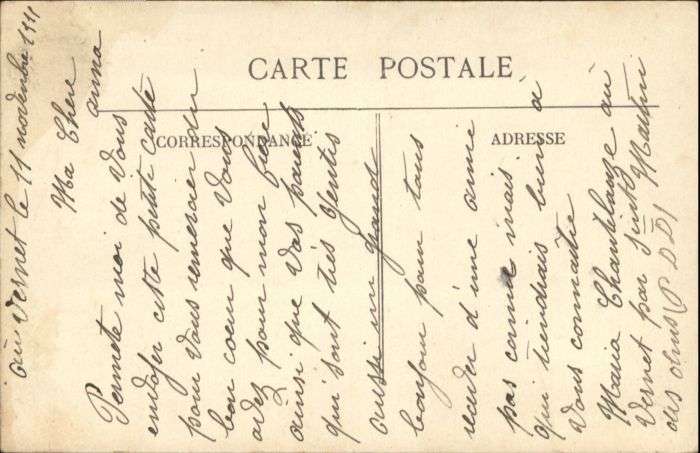 CARTE POSTALE
CORRESPONDANCE
ADRESSE
au Vernet le 11 novembre 1915
Ma Chere
anna
Permete moi de Vous
envoyer cete petite carte
pour Vous remercier du
bon coeur que Vous
avez pour mon frere
ainsi que Vos parents
qui sont très gentis
aussi un grand
bonjour pour tous
recever d'une amie
pas connue mais
qui tiendrais bien à
Vous connaitre
Maria Chantelauze au
Vernet par Sint Martin
des olms P D D